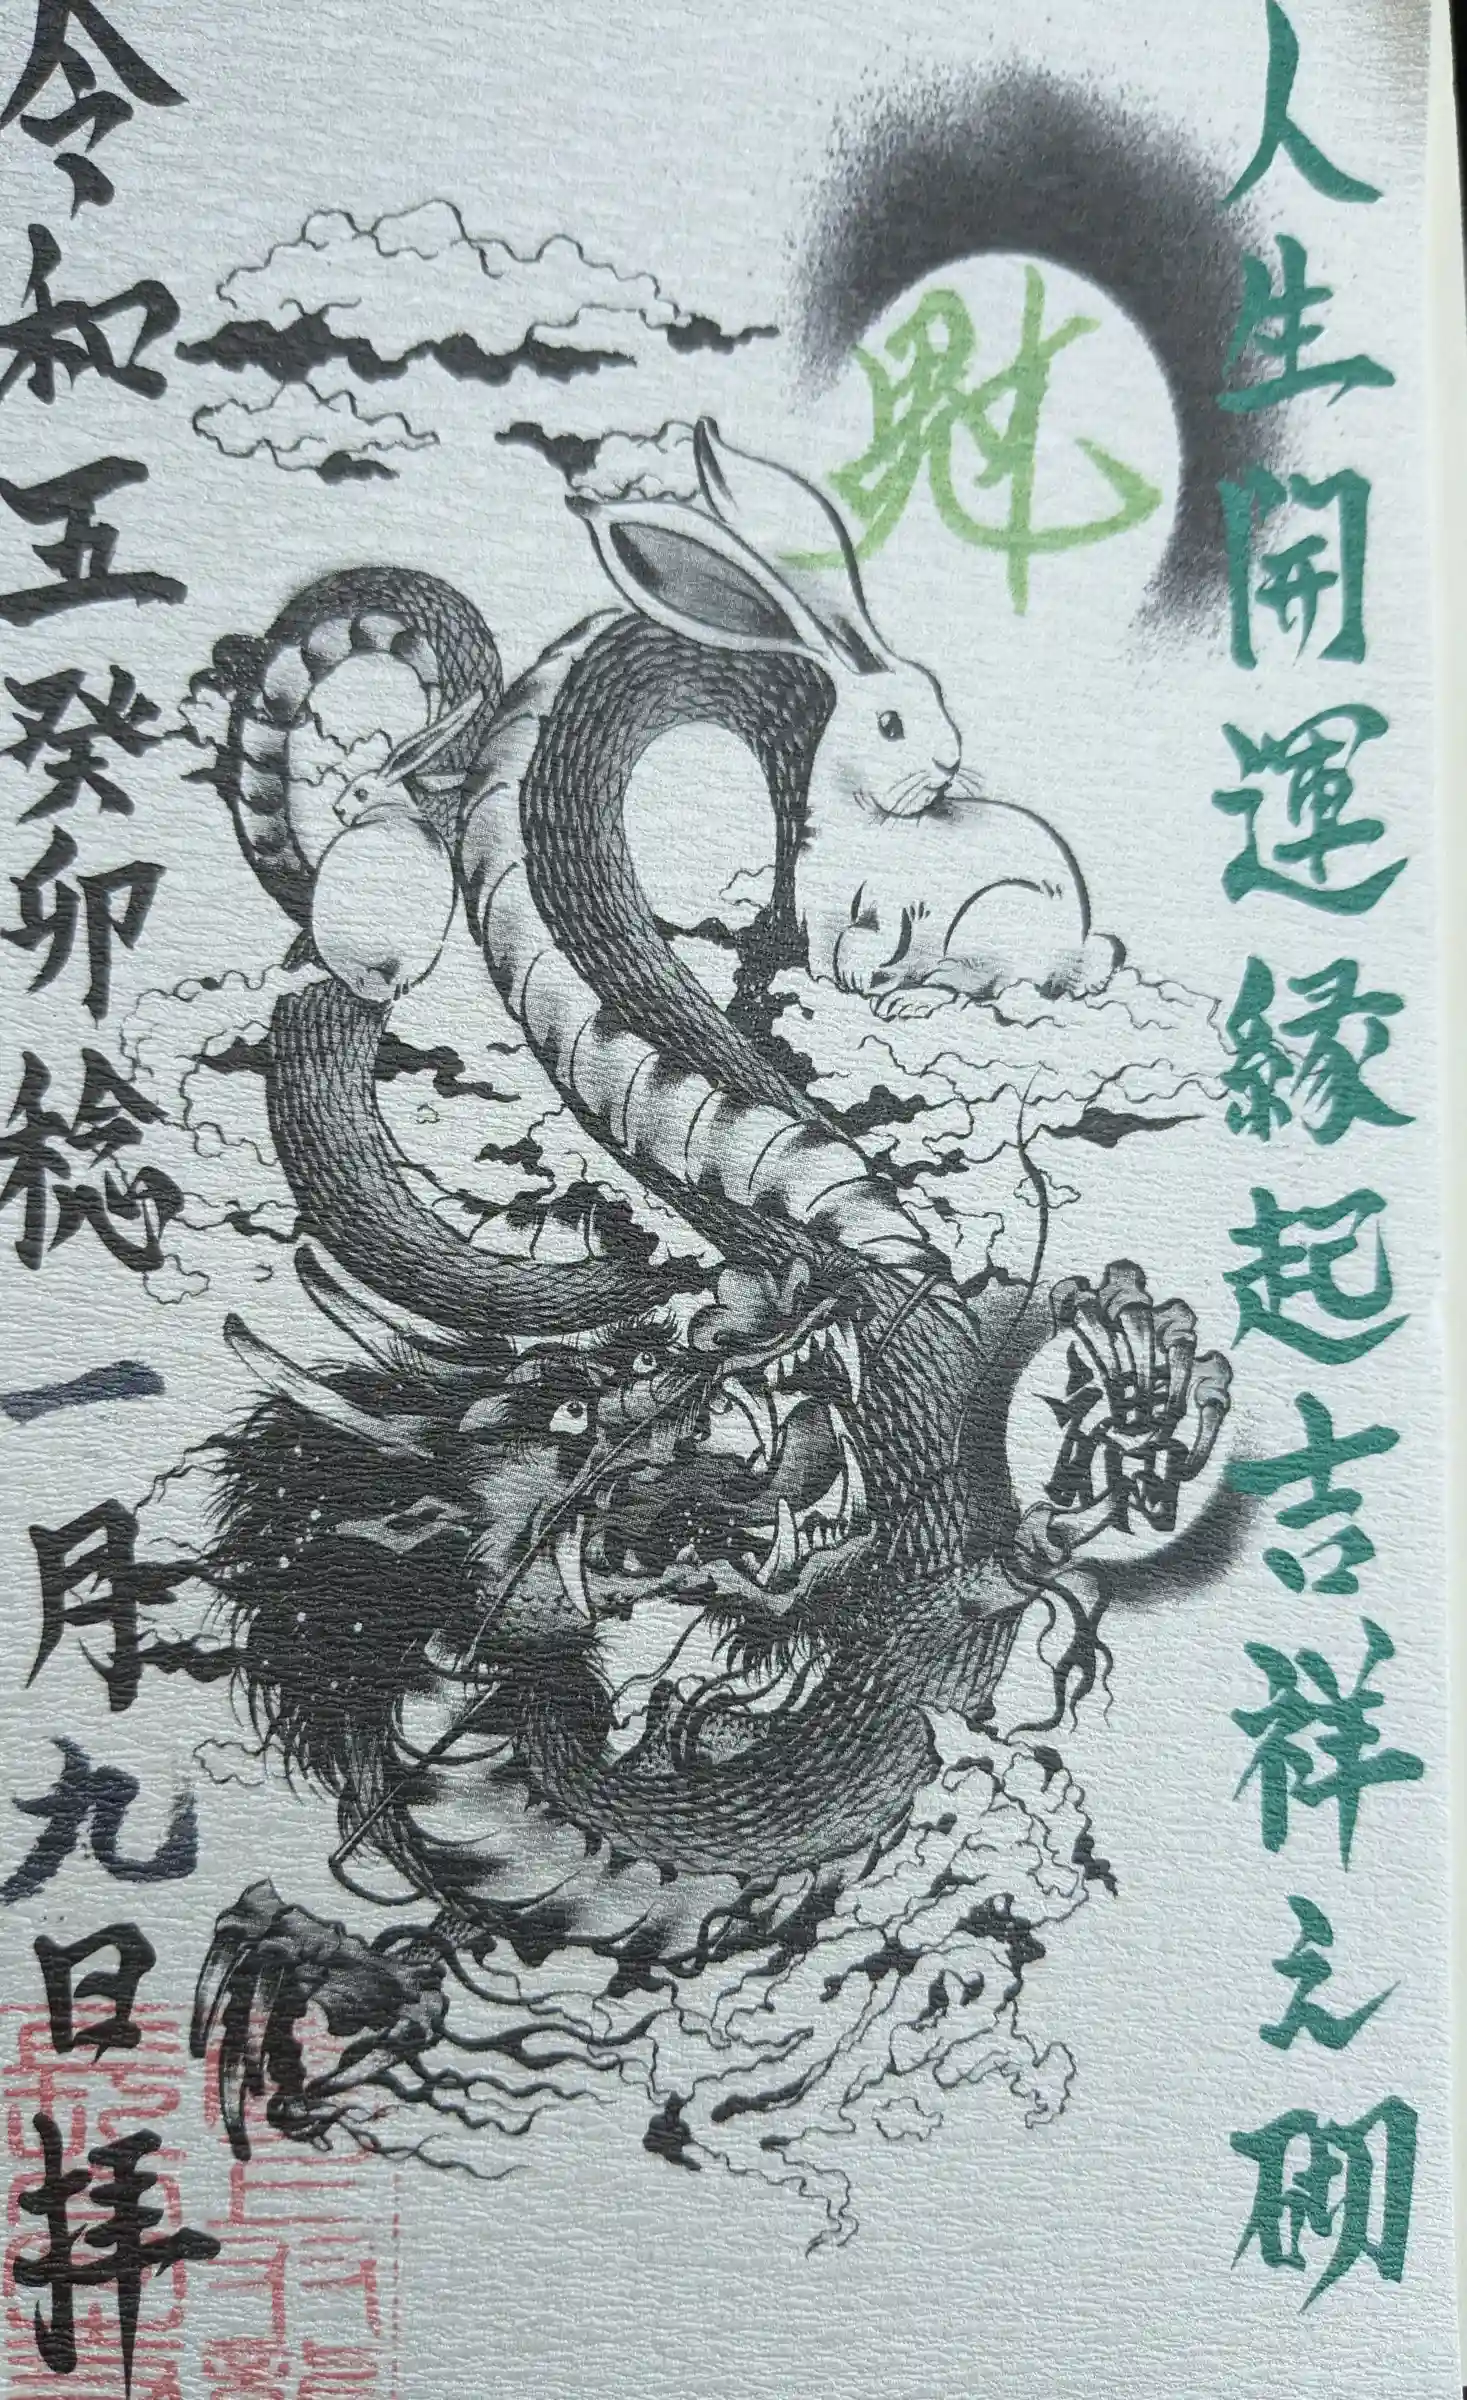 人生開運縁起吉祥之砌
令和五癸卯稔一月九日拝